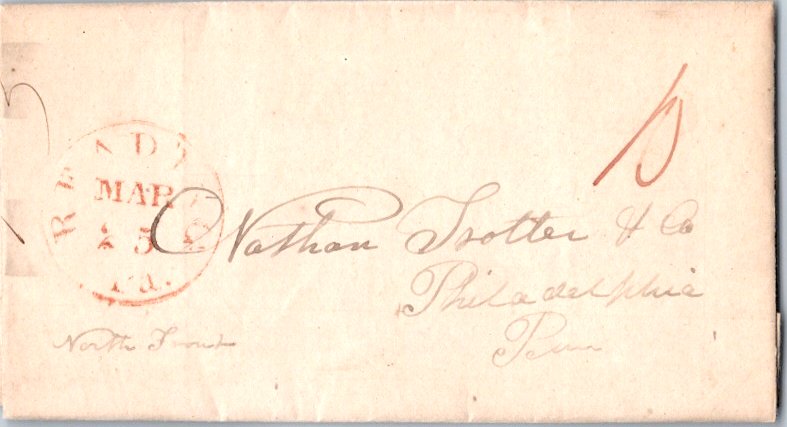 READING
MAR
25
Pa.
10
Nathan Trotter & Co
Philadelphia
Penn
North Front